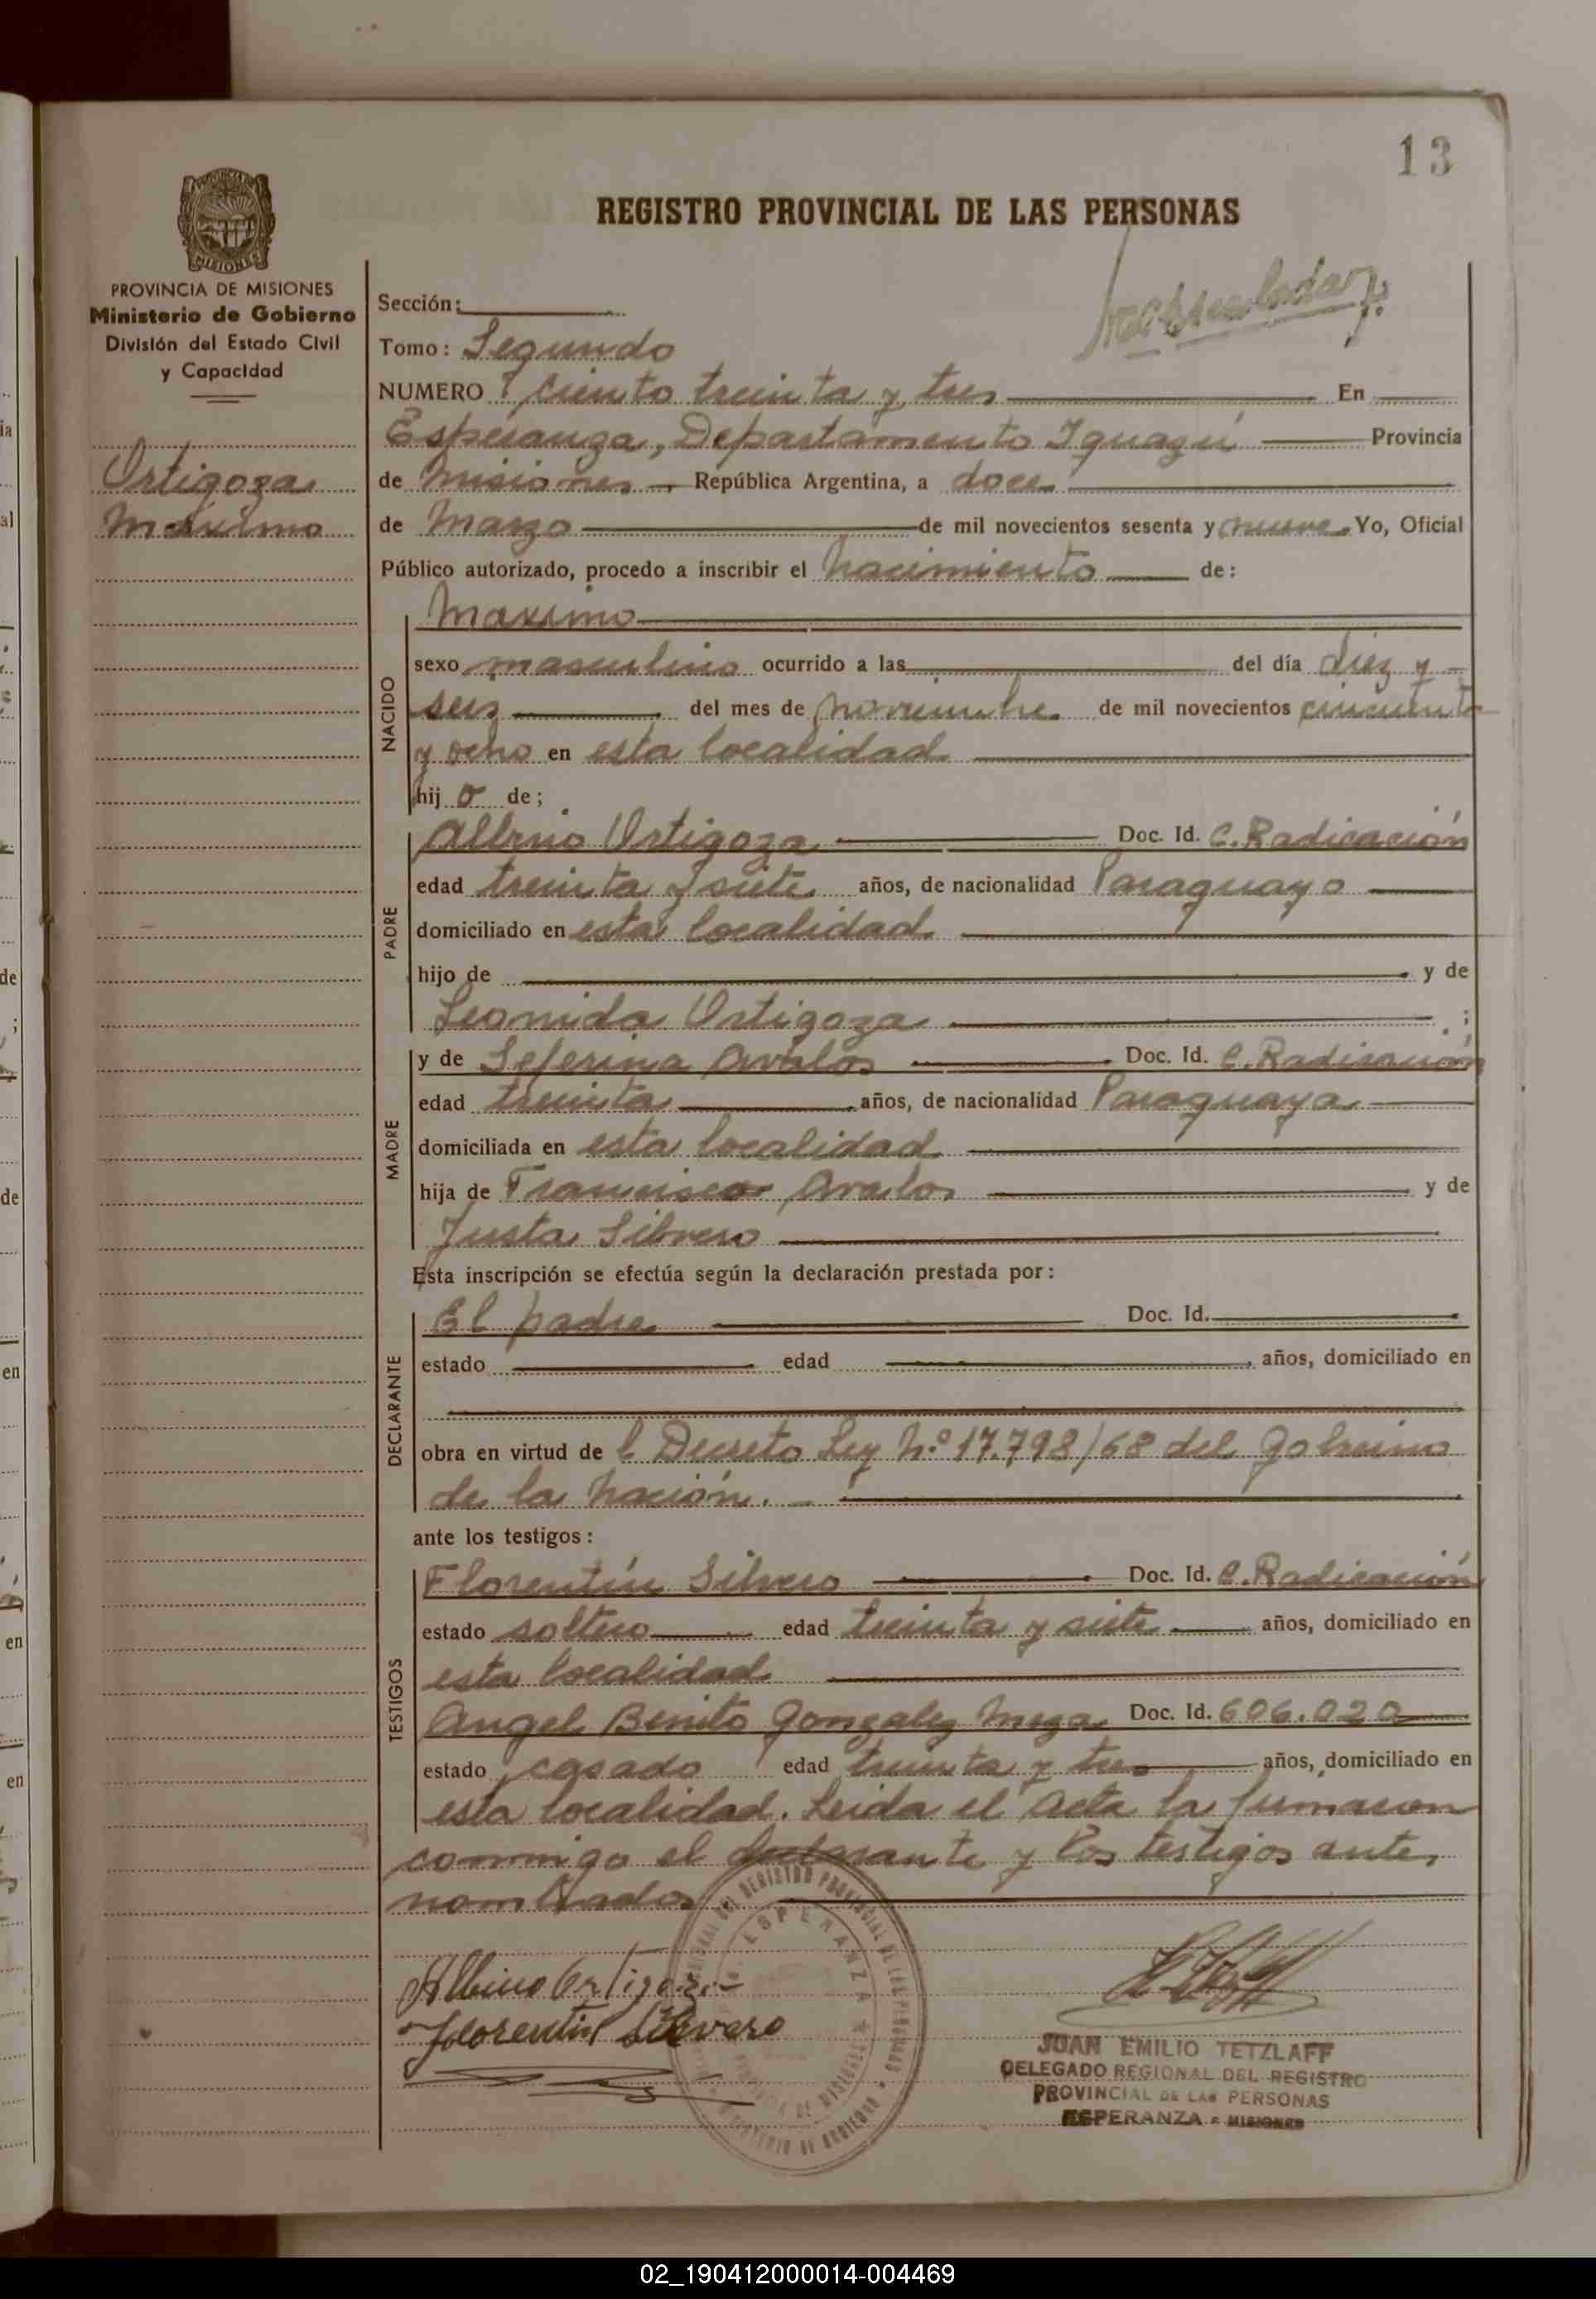 13
REGISTRO PROVINCIAL DE LAS PERSONAS
PROVINCIA DE MISIONES
Ministerio de Gobierno
División del Estado Civil
y Capacidad
Ortigoza
Maximo
Sección:
Tomo: Segundo
NUMERO ciento treinta y tres En
Esperanza, Departamento Iguazú Provincia
de Misiones República Argentina, a doce
de Marzo de mil novecientos sesenta y nueve Yo, Oficial
Público autorizado, procedo a inscribir el Nacimiento de:
NACIDO
Maximo
sexo masculino ocurrido a las del día diez y
seis del mes de Noviembre de mil novecientos cincuenta
y ocho en esta localidad
hij o de;
PADRE
Albino Ortigoza Doc. Id. C. Radicación
edad treinta y siete años, de nacionalidad Paraguayo
domiciliado en esta localidad
hijo de y de
Leonida Ortigoza ;
MADRE
y de Seferina Avalos Doc. Id. C. Radicación
edad treinta años, de nacionalidad Paraguaya
domiciliada en esta localidad
hija de Francisco Avalos y de
Justa Silvero
Esta inscripción se efectúa según la declaración prestada por:
DECLARANTE
El padre Doc. Id.
estado edad años, domiciliado en
obra en virtud de l Decreto Ley N.º 17.798/68 del Gobierno
de la Nación.
ante los testigos:
TESTIGOS
Florentín Silvero Doc. Id. C. Radicación
estado soltero edad treinta y siete años, domiciliado en
esta localidad
Angel Benito Gonzalez Meza Doc. Id. 606.020
estado casado edad treinta y tres años, domiciliado en
esta localidad. Leida el Acta la firmaron
conmigo el declarante y los testigos ante
nombrados
Albino Ortigoza
Florentin Silvero
ESPERANZA
JUAN EMILIO TETZLAFF
DELEGADO REGIONAL DEL REGISTRO
PROVINCIAL DE LAS PERSONAS
ESPERANZA - MISIONES
02_190412000014-004469